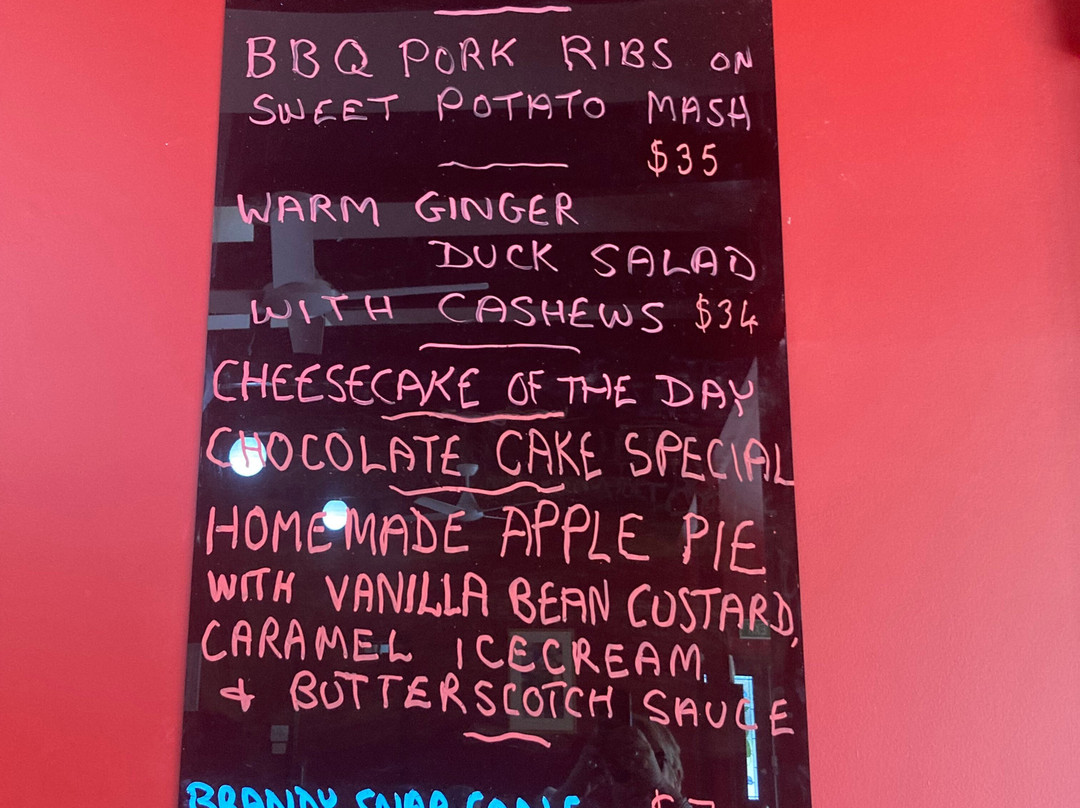 BBQ PORK RIBS ON
SWEET POTATO MASH
$35
WARM GINGER
DUCK SALAD
WITH CASHEWS $34
CHEESECAKE OF THE DAY
CHOCOLATE CAKE SPECIAL
HOMEMADE APPLE PIE
WITH VANILLA BEAN CUSTARD,
CARAMEL ICECREAM
& BUTTERSCOTCH SAUCE
BRANDY SNAP